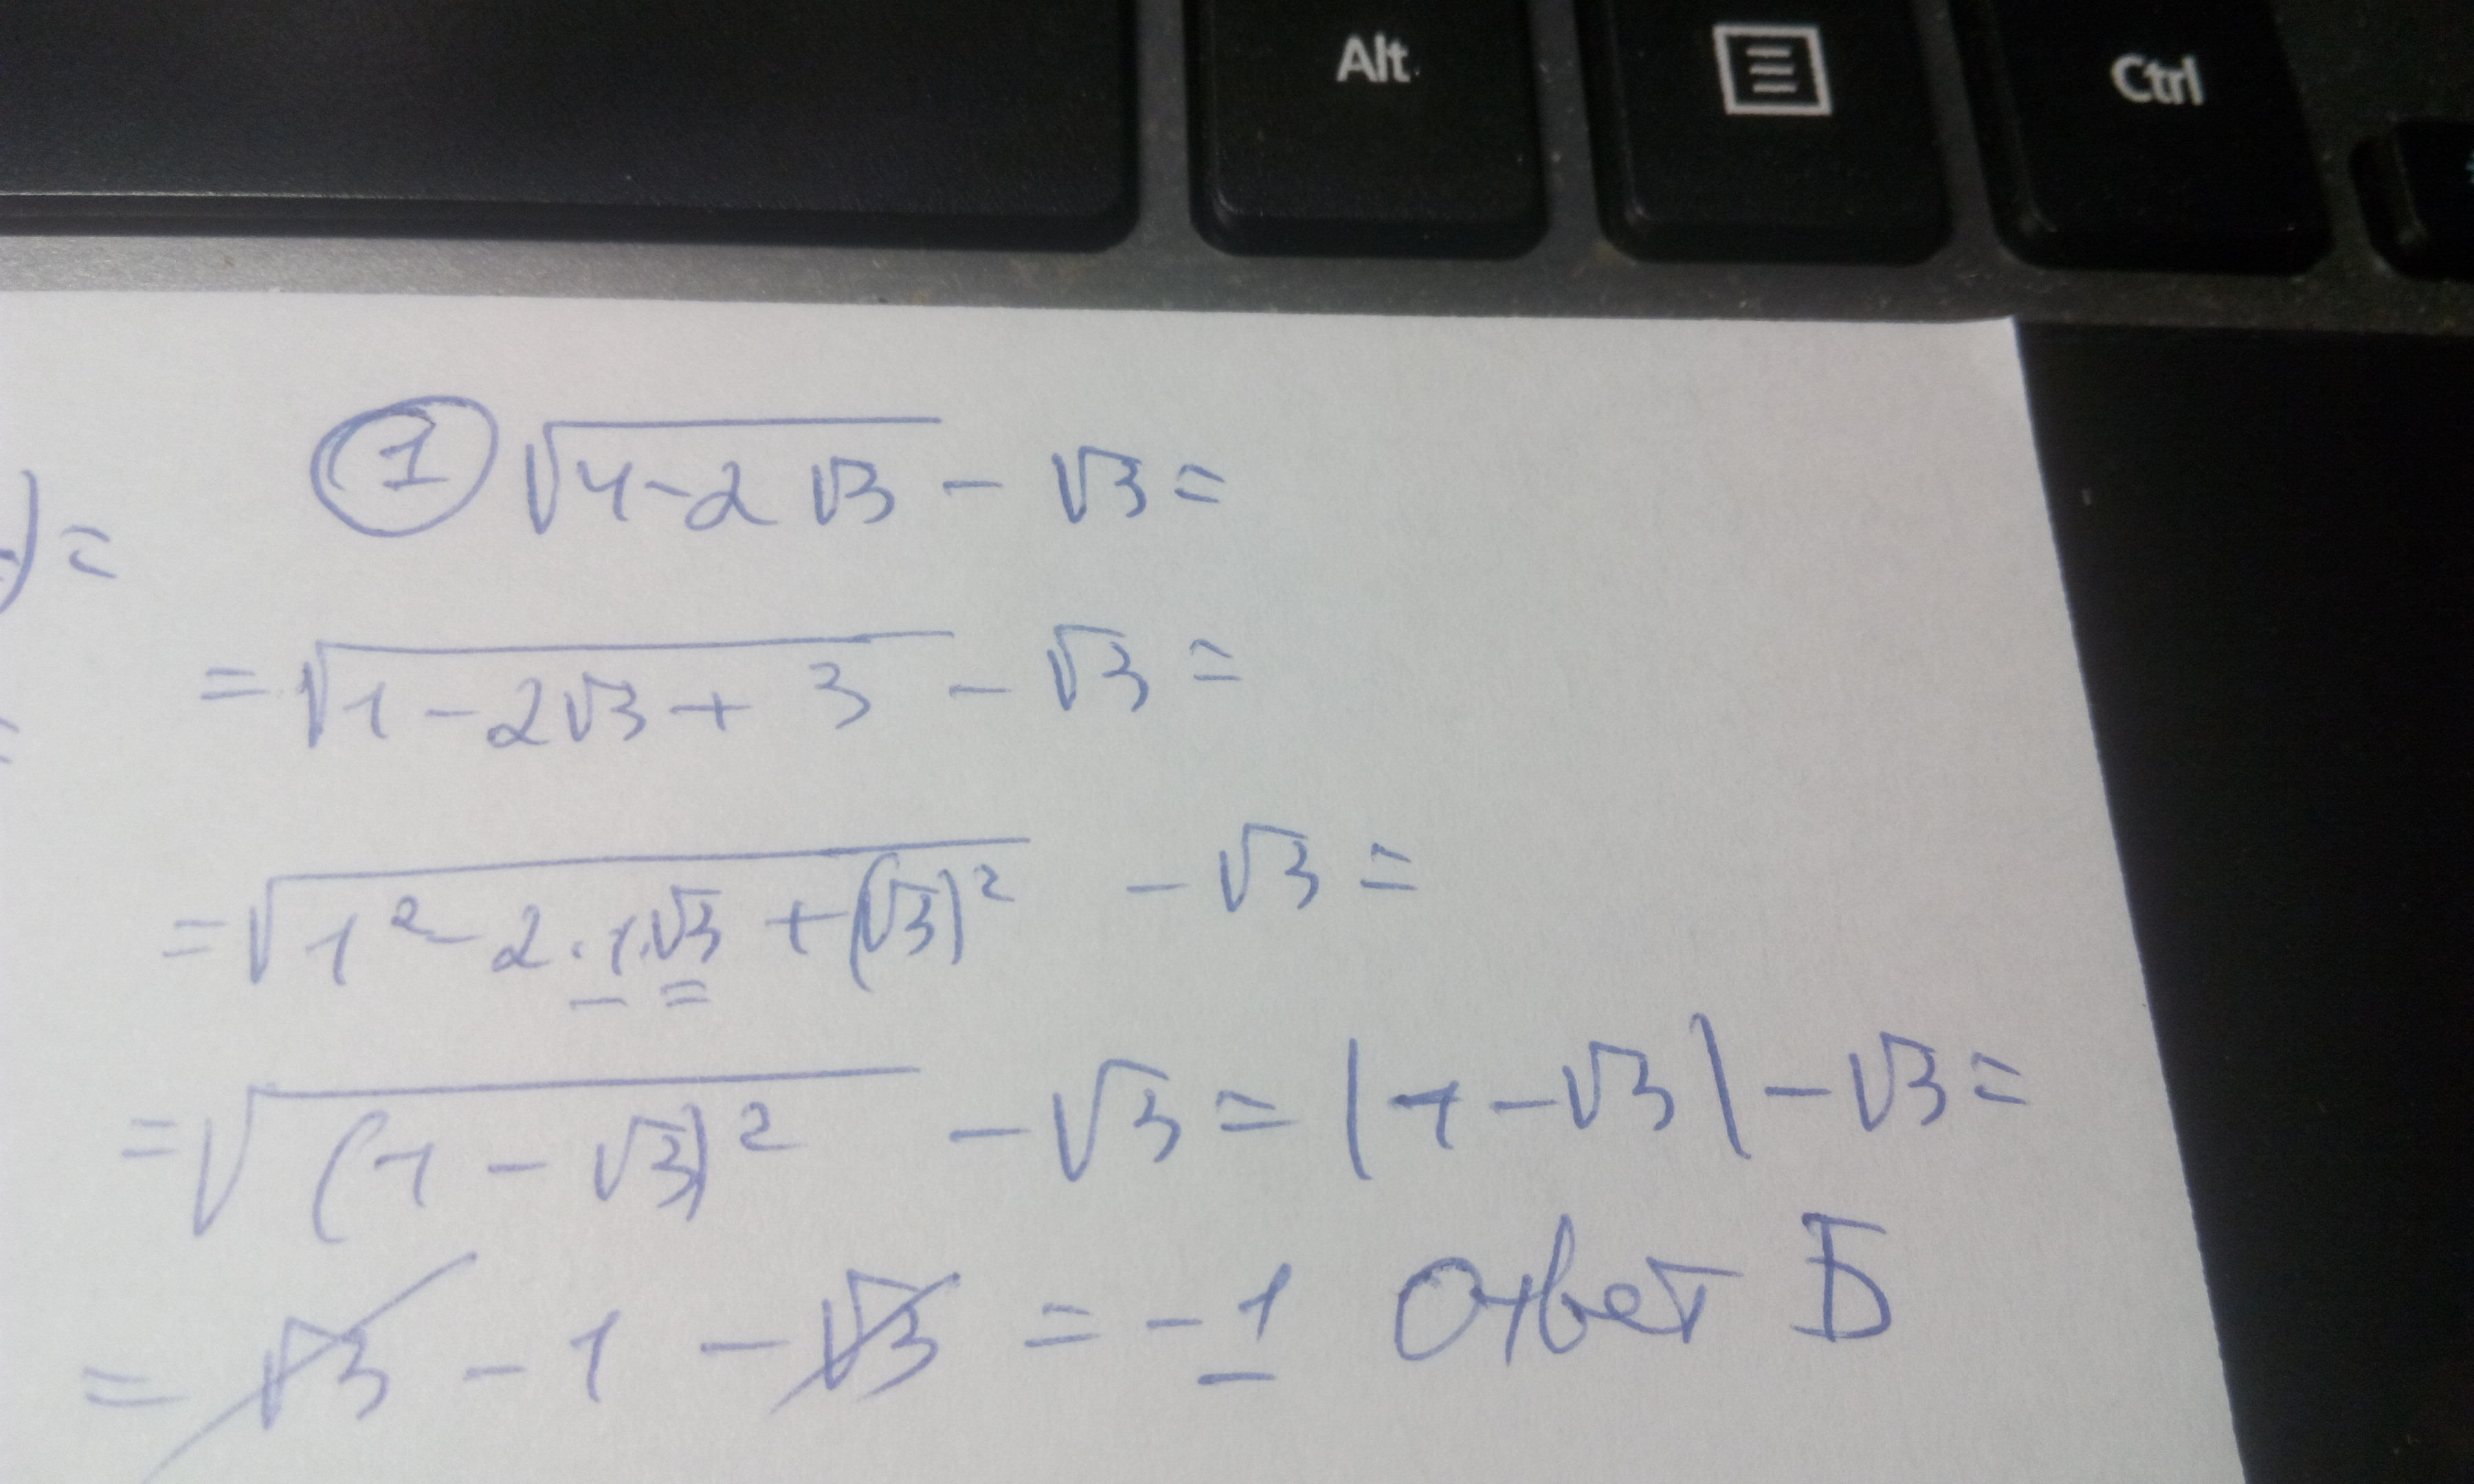 Alt
Ctrl
① √(4-2√3) - √3 =
) =
= √(1 - 2√3 + 3) - √3 =
= √(1² - 2·1·√3 + (√3)²) - √3 =
= √((1 - √3)²) - √3 = |1 - √3| - √3 =
= √3 - 1 - √3 = -1 Ответ Б